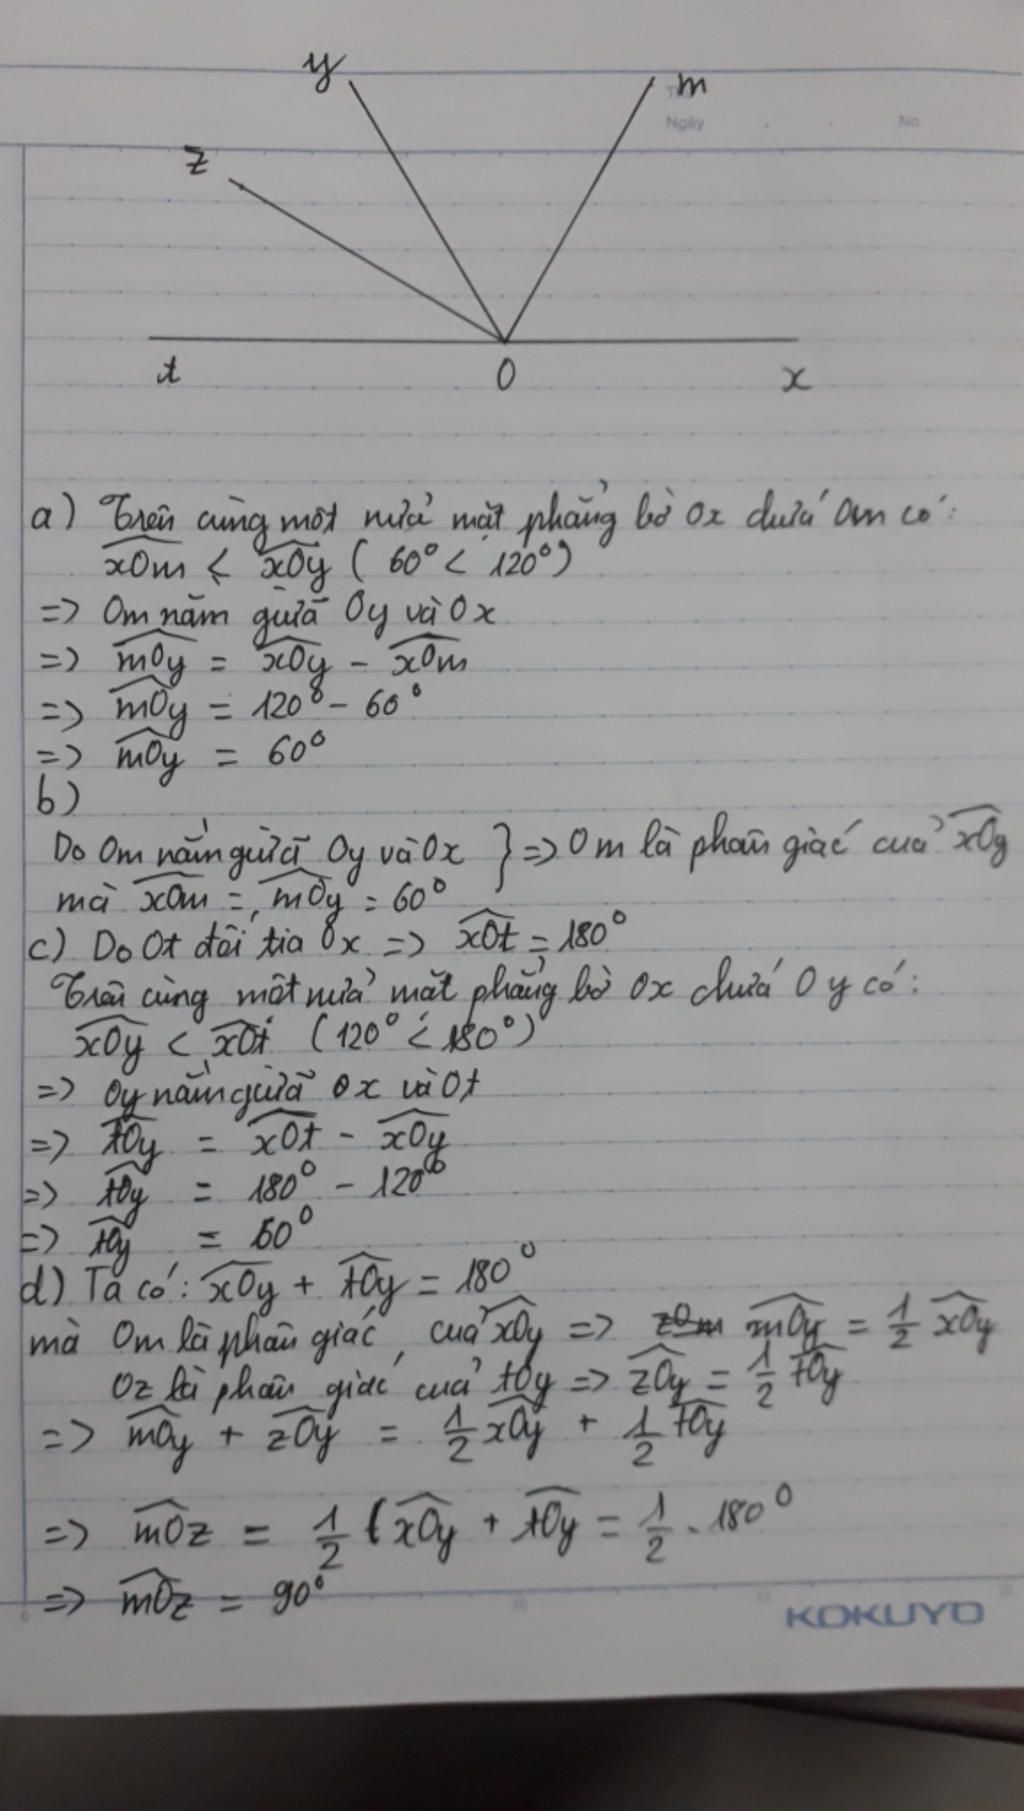 y
m
Ngày
No.
z
t
O
x
a) Trên cùng một nửa mặt phẳng bờ Ox chứa Om có:
xOm < xOy ( 60° < 120°)
=> Om nằm giữa Oy và Ox
=> mOy = xOy - xOm
=> mOy = 120° - 60°
=> mOy = 60°
b)
Do Om nằm giữa Oy và Ox } => Om là phân giác của xOy
mà xOm = mOy = 60°
c) Do Ot đối tia Ox => xOt = 180°
Trên cùng một nửa mặt phẳng bờ Ox chứa Oy có:
xOy < xOt (120° < 180°)
=> Oy nằm giữa Ox và Ot
=> tOy = xOt - xOy
=> tOy = 180° - 120°
=> tOy = 60°
d) Ta có: xOy + tOy = 180°
mà Om là phân giác của xOy => mOy = 1/2 xOy
Oz là phân giác của tOy => zOy = 1/2 tOy
=> mOy + zOy = 1/2 xOy + 1/2 tOy
=> mOz = 1/2 (xOy + tOy = 1/2 . 180°
=> mOz = 90°
KOKUYO